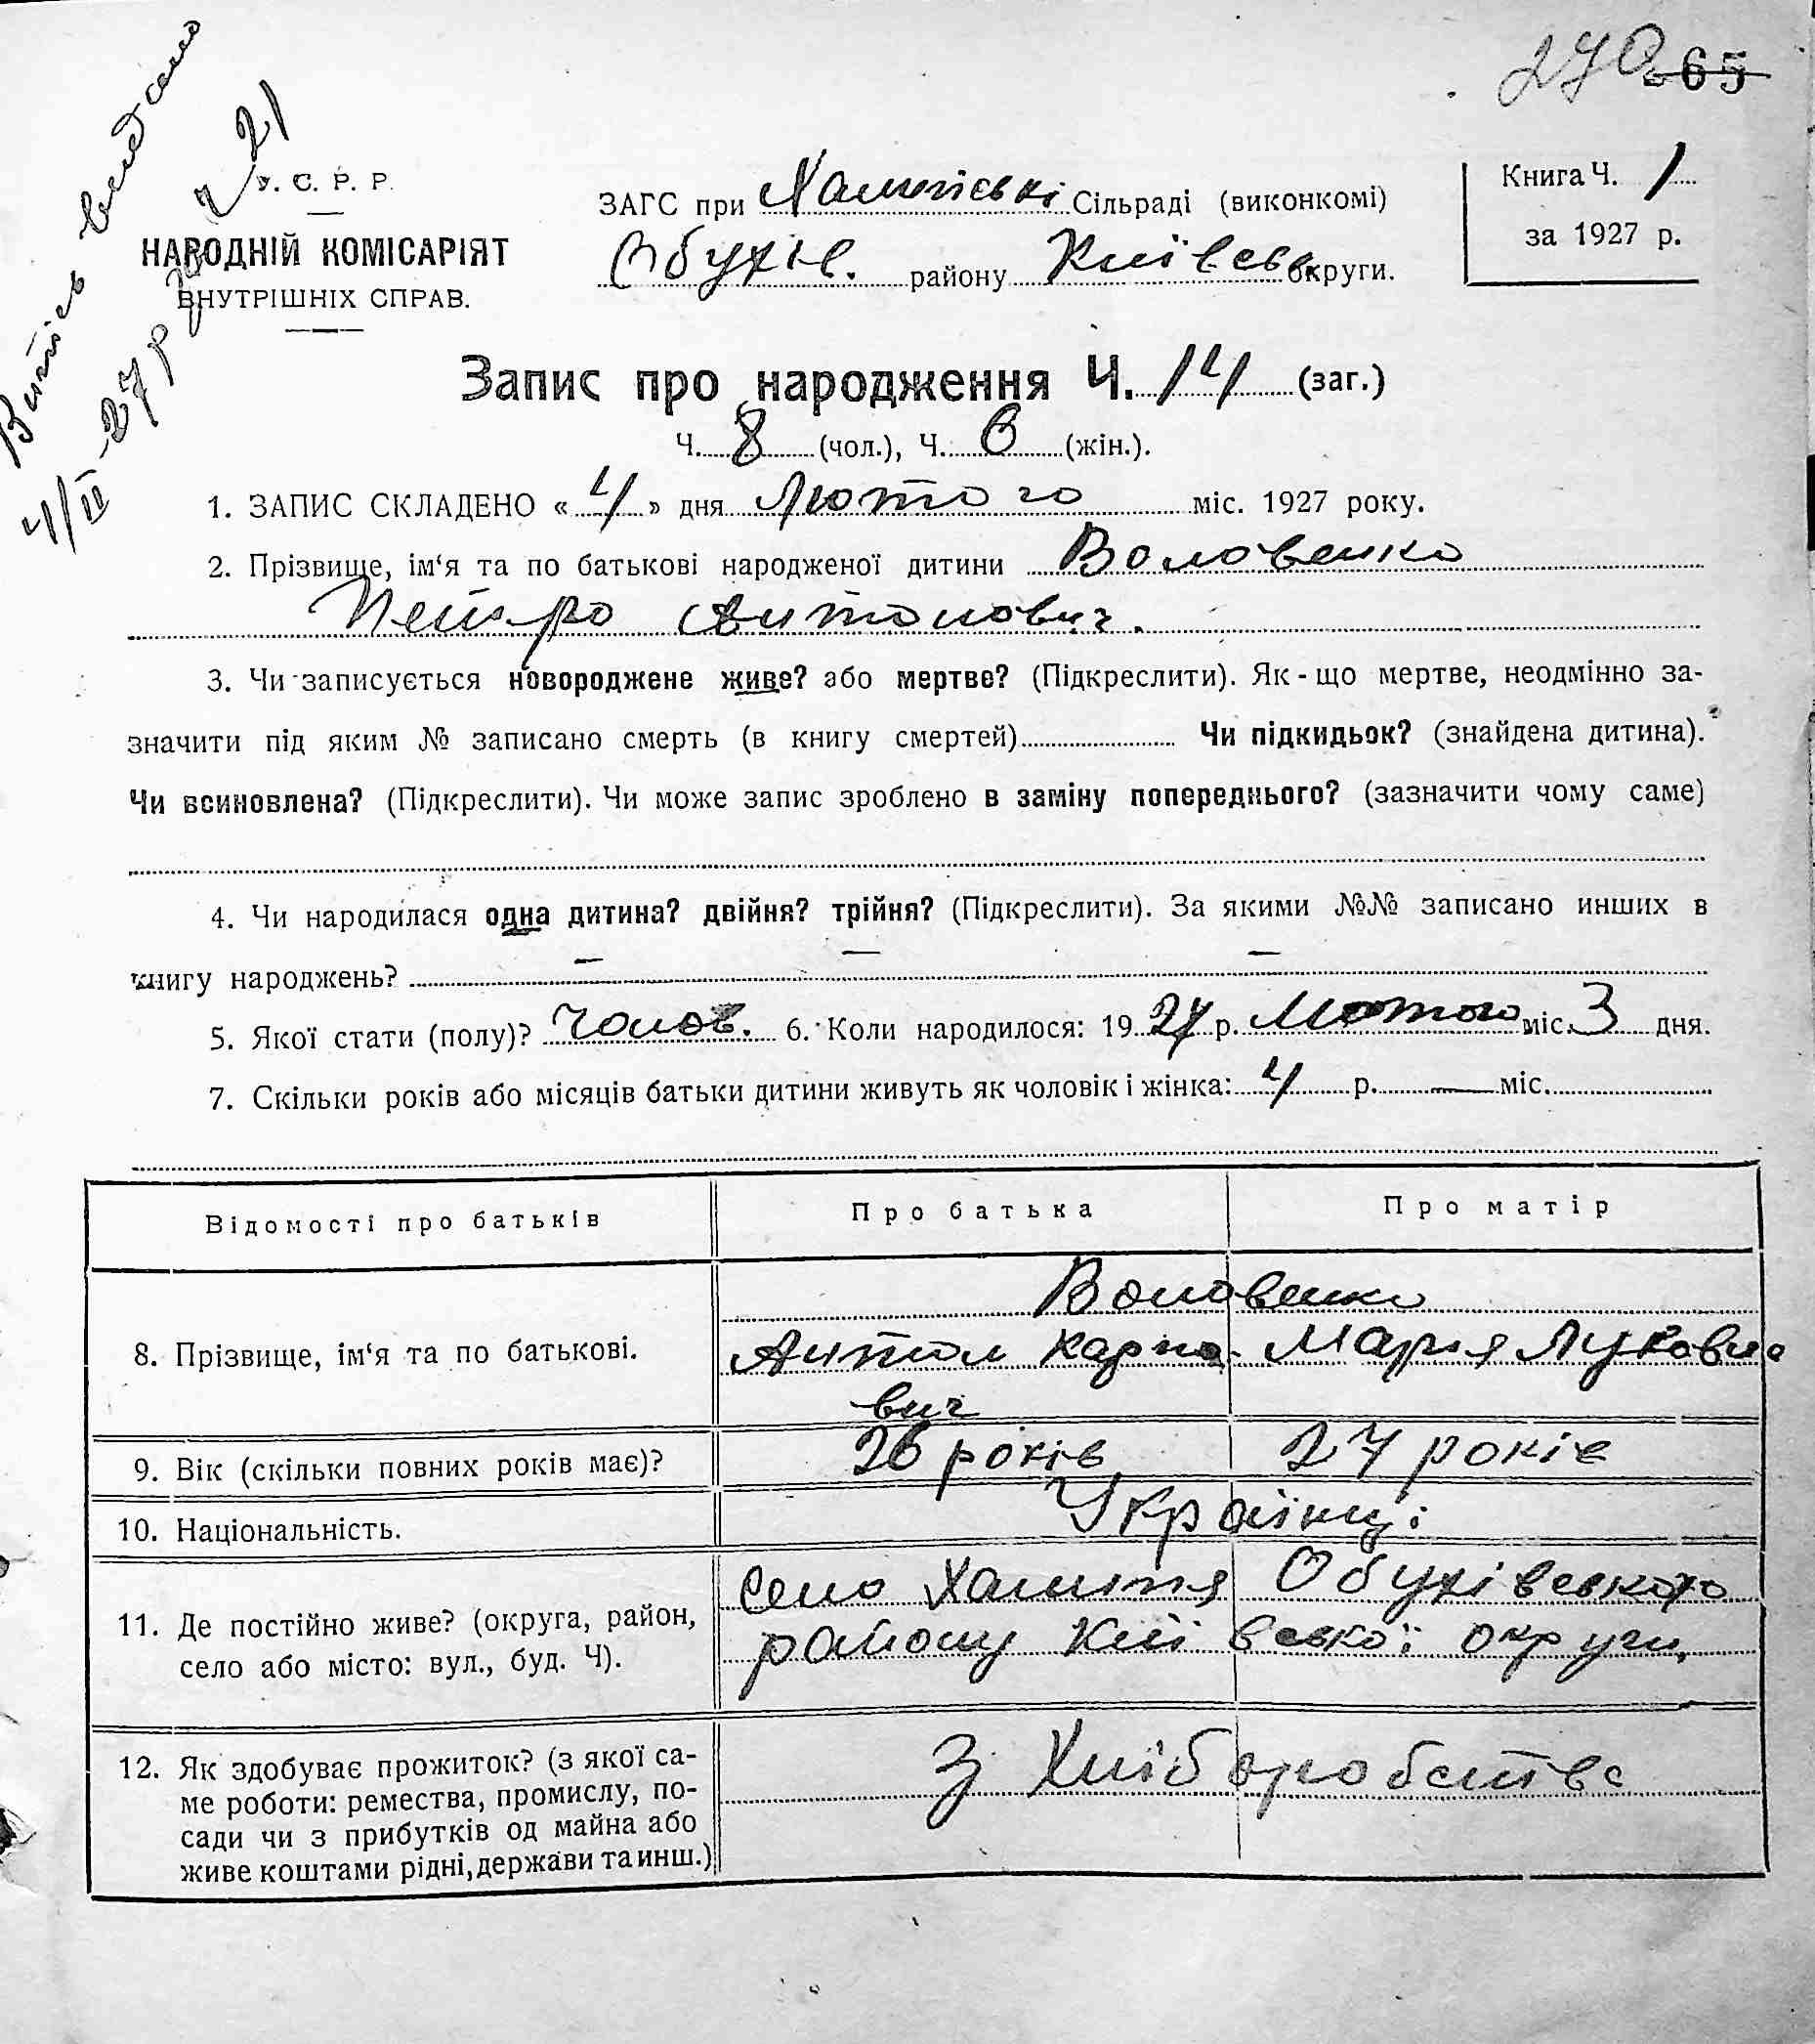 270 65
Витяг видано
4/II-27 р за № 21
У. С. Р. Р.
НАРОДНІЙ КОМІСАРІЯТ
ВНУТРІШНІХ СПРАВ.
ЗАГС при Халепській Сільраді (виконкомі)
Обухів. району Київськ округи.
Книга Ч. 1
за 1927 р.
Запис про народження Ч. 14 (заг.)
Ч. 8 (чол.), Ч. 6 (жін.).
1. ЗАПИС СКЛАДЕНО « 4 » дня Лютого міс. 1927 року.
2. Прізвище, ім‘я та по батькові народженої дитини Воловенко
Петро Антонович.
3. Чи записується новороджене живе? або мертве? (Підкреслити). Як-що мертве, неодмінно за-
значити під яким № записано смерть (в книгу смертей) Чи підкидьок? (знайдена дитина).
Чи всиновлена? (Підкреслити). Чи може запис зроблено в заміну попереднього? (зазначити чому саме)
4. Чи народилася одна дитина? двійня? трійня? (Підкреслити). За якими №№ записано инших в
книгу народжень? — — —
5. Якої стати (полу)? Чолов. 6. Коли народилося: 19 27 р. Лютого міс. 3 дня.
7. Скільки років або місяців батьки дитини живуть як чоловік і жінка: 4 р. — міс.
Відомості про батьків Про батька Про матір
8. Прізвище, ім‘я та по батькові. Воловенко
Антон Карпо- Марія Луковна
вич
9. Вік (скільки повних років має)? 26 років 27 років
10. Національність. Українці
11. Де постійно живе? (округа, район, село або місто: вул., буд. Ч). село Халепʼя Обухівського
району Київської округи,
12. Як здобуває прожиток? (з якої са- З Хліборобства
ме роботи: ремества, промислу, по-
сади чи з прибутків од майна або
живе коштами рідні, держави та инш.)